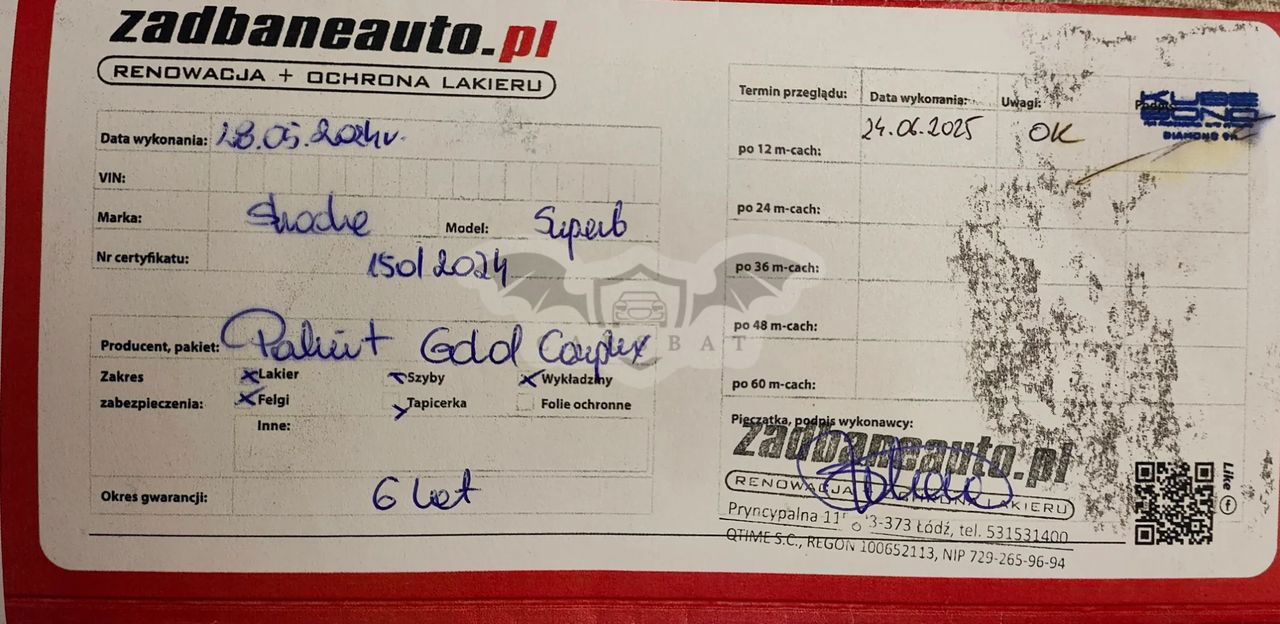 zadbaneauto.pl
RENOWACJA + OCHRONA LAKIERU
Data wykonania: 28.05.2024r.
VIN:
Marka: Skoda Model: Superb
Nr certyfikatu: 150/2024
Producent, pakiet: Pakiet Gold Complex
Zakres zabezpieczenia:
Lakier Szyby Wykładziny
Felgi Tapicerka Folie ochronne
Inne:
Okres gwarancji: 6 lat
Termin przeglądu: Data wykonania: Uwagi: Podpis
po 12 m-cach: 24.06.2025 OK
po 24 m-cach:
po 36 m-cach:
po 48 m-cach:
po 60 m-cach:
DIAMOND
Pieczątka, podpis wykonawcy:
zadbaneauto.pl
RENOWACJA OCHRONA LAKIERU
Pryncypalna 3-373 Łódź, tel. 531531400
QTIME S.C., REGON 100652113, NIP 729-265-96-94
Like